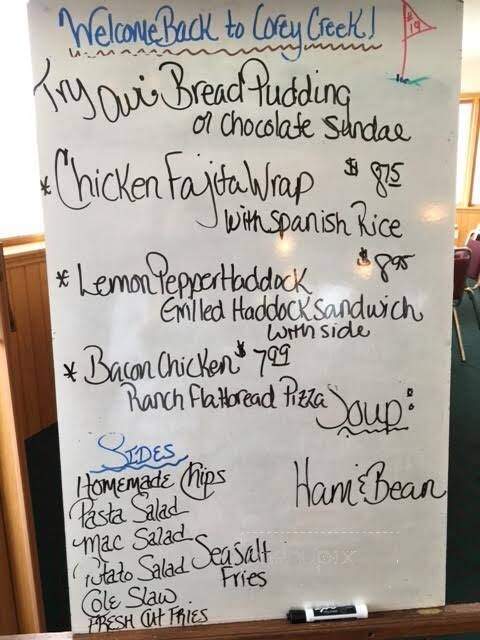 Welcome Back to Corey Creek!
#19
Try Our Bread Pudding
or Chocolate Sundae
* Chicken Fajita Wrap $ 8.75
with Spanish Rice
* Lemon Pepper Haddock $ 8.95
Grilled Haddock Sandwich
with side
* Bacon Chicken $ 7.99
Ranch Flatbread Pizza
Soup:
Ham & Bean
SIDES
Homemade Chips
Pasta Salad
Mac Salad
Potato Salad
Cole Slaw
FRESH CUT FRIES
Sea salt
Fries